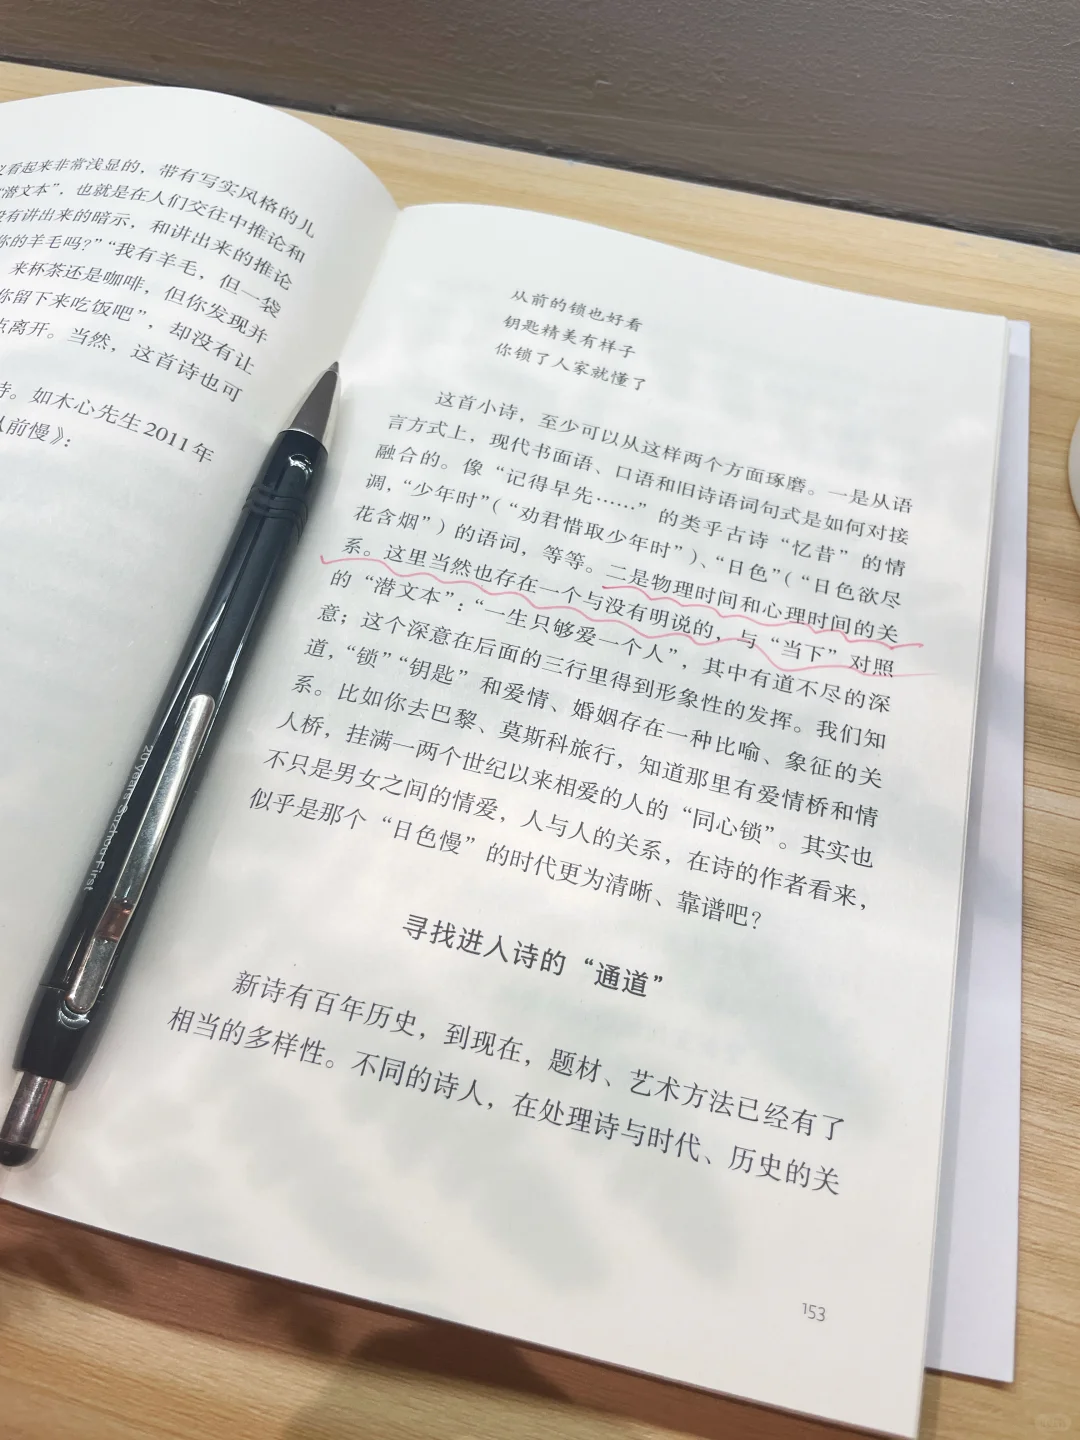 看起来非常浅显的，带有写实风格的儿
“潜文本”，也就是在人们交往中推论和
没有讲出来的暗示，和讲出来的推论
你的羊毛吗？”“我有羊毛，但一袋
来杯茶还是咖啡，但你发现并
你留下来吃饭吧”，却没有让
点离开。当然，这首诗也可
诗。如木心先生2011年
从前慢》：
从前的锁也好看
钥匙精美有样子
你锁了人家就懂了
这首小诗，至少可以从这样两个方面琢磨。一是从语
言方式上，现代书面语、口语和旧诗语词句式是如何对接
融合的。像“记得早先……”的类乎古诗“忆昔”的情
调，“少年时”（“劝君惜取少年时”）、“日色”（“日色欲尽
花含烟”）的语词，等等。二是物理时间和心理时间的关
系。这里当然也存在一个与没有明说的，与“当下”对照
的“潜文本”：“一生只够爱一个人”，其中有道不尽的深
意；这个深意在后面的三行里得到形象性的发挥。我们知
道，“锁”“钥匙”和爱情、婚姻存在一种比喻、象征的关
系。比如你去巴黎、莫斯科旅行，知道那里有爱情桥和情
人桥，挂满一两个世纪以来相爱的人的“同心锁”。其实也
不只是男女之间的情爱，人与人的关系，在诗的作者看来，
似乎是那个“日色慢”的时代更为清晰、靠谱吧？
寻找进入诗的“通道”
新诗有百年历史，到现在，题材、艺术方法已经有了
相当的多样性。不同的诗人，在处理诗与时代、历史的关
153
20 years Suzhou First